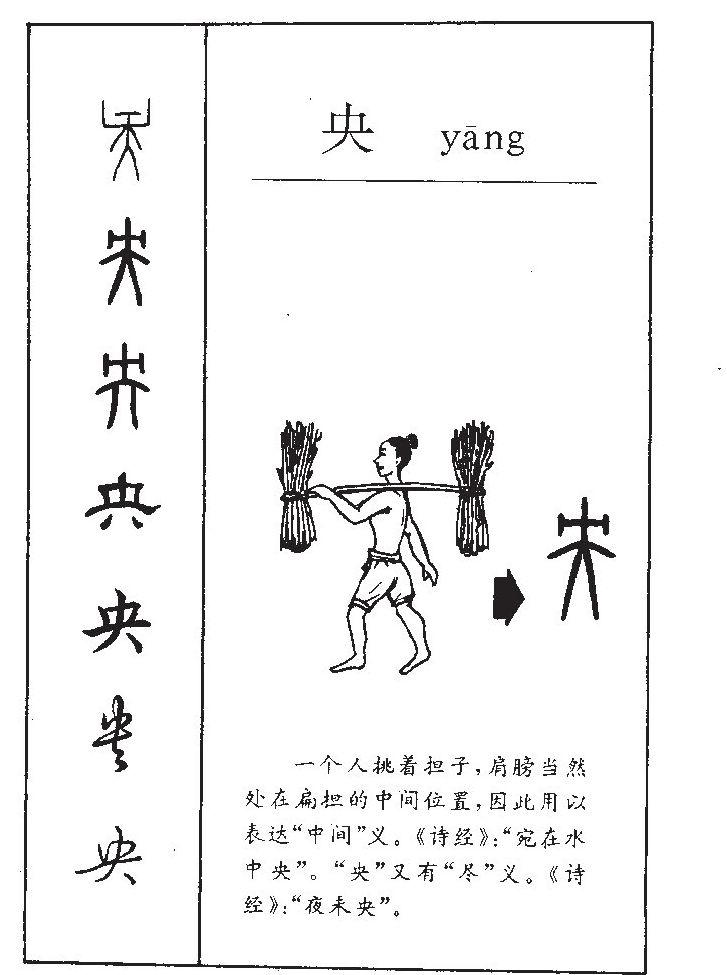 央 yāng
一个人挑着担子，肩膀当然
处在扁担的中间位置，因此用以
表达“中间”义。《诗经》：“宛在水
中央”。“央”又有“尽”义。《诗
经》：“夜未央”。